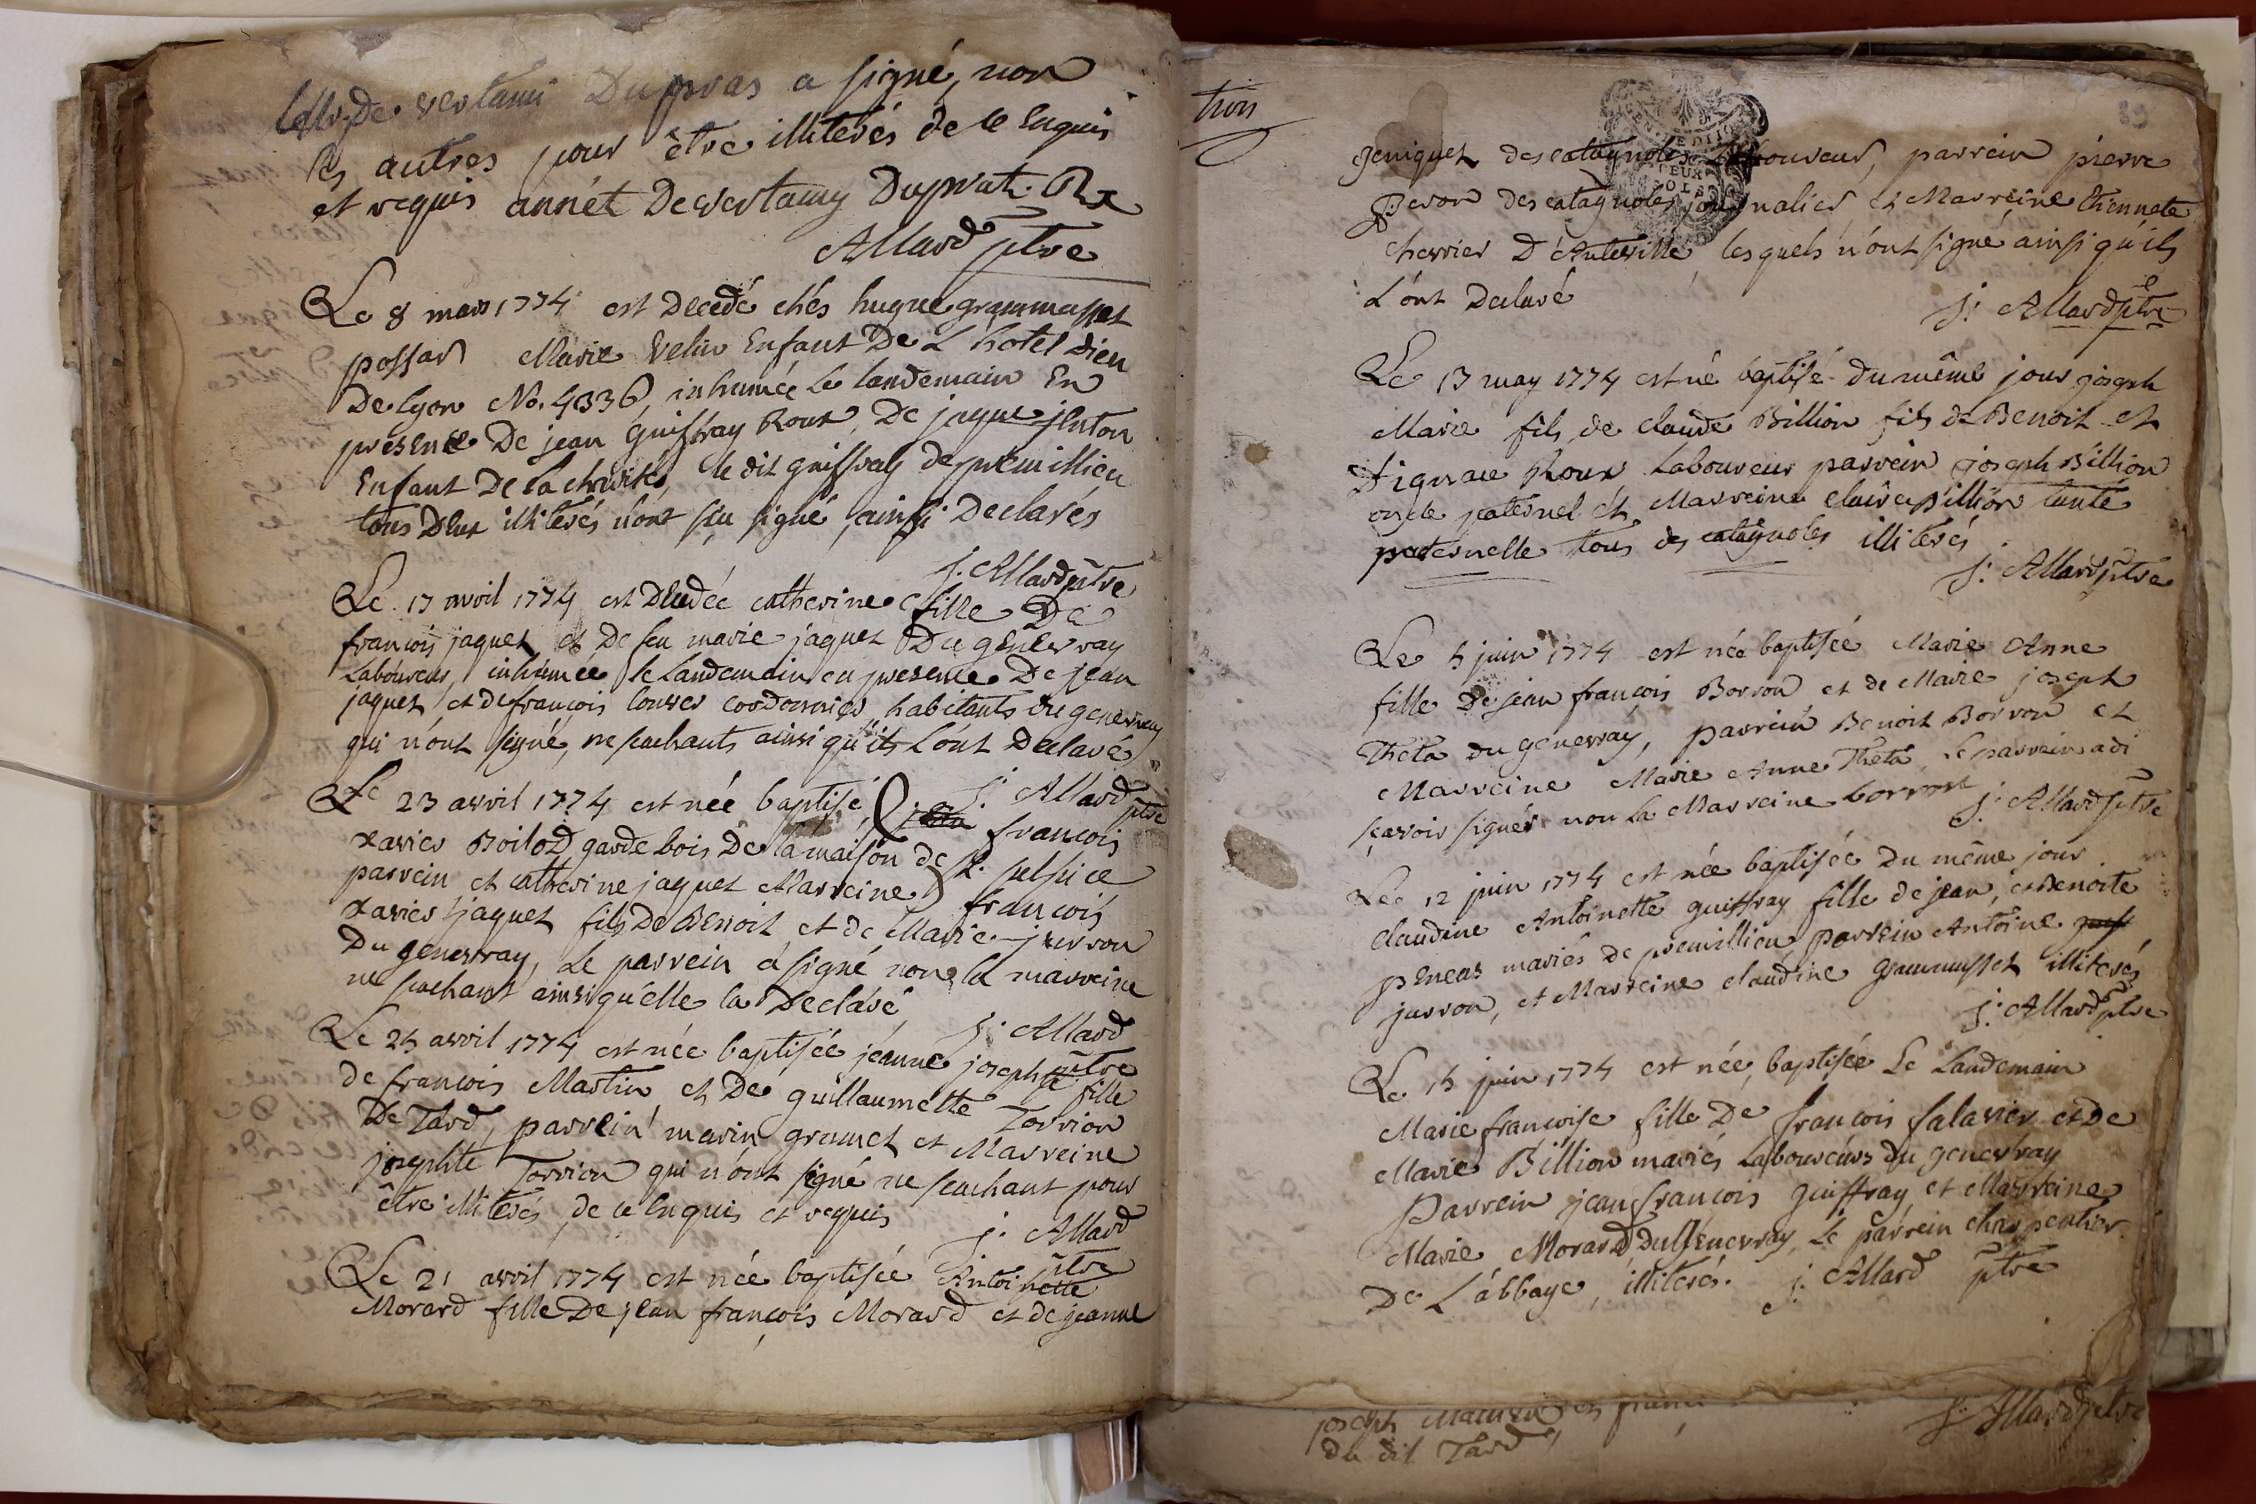 De vertami Dupras a signé, non
les autres pour être illiterés de ce Enquis
et requis annét Devertamy Duprat. Rx
Allard ptre
Le 8 mars 1774 est decedé chés hugue grammusset
possar Marie Velin Enfant De L'hotel dieu
De lyon No. 4336, inhumée Le landemain En
presence De jean guiffray Roux, De jaque jenton
Enfant De La charité, le dit guiffray de premillieu
tous Deux illiterés n'ont sçu signé, ainsi Declarés
j. Allard ptre
Le 17 avril 1774 est Decedée catherine fille De
françois jaquet et De feu marie jaquet Du genevray
Laboureur, inhumée le Landemain en presence De jean
jaquet, et de françois cordonnier habitants du genevray
qui n'ont signé, ne scachants ainsi qu'ils L'ont Declaré
j. Allard
ptre
Le 23 avril 1774 est née baptisé, françois
xavier Boilod garde bois De la maison de st. sulpice
parrein et catherine jaquet Marreine) françois
xavier jaquet fils De Benoit et de Marie jurron
Du genevray, Le parrein a signé non la marreine
ne scachant ainsi qu'elle la Declaré
j. Allard
ptre
Le 25 avril 1774 est née baptisée jeanne josephte fille
de françois Martin et De guillaumette Torrion
De Tard, parrein marin gramet et Marreine
josephte Torrion qui n'ont signé ne scachant pour
être illiterés, de ce Enquis et requis
j. Allard
ptre
Le 21 avril 1774 est née baptisée Antoinette
Morard fille De jean françois Morard et de jeanne
trois
89
geniquet des catagnoles Laboureur, parrein pierre
peron des catagnoles journalier et Marreine Etiennete
chevrier D'Anteville, lesquels n'ont signé ainsi qu'ils
L'ont Declaré
j. Allard ptre
Le 13 may 1774 est né baptisé du même jour joseph
Marie fils de claude Billion fils de Benoit et
Roux Laboureur parrein joseph Billion
oncle paternel et Marreine claire Billion tante
paternelle tous des catagnoles illiterés
j. Allard ptre
Le 5 juin 1774 est née baptisée Marie Anne
fille De jean françois Borron et de Marie joseph
Theta du genevray, parrein Benoit Borron et
Marreine Marie Anne Theta, Le parrein a di
sçavoir signer non La Marreine borron
j. Allard ptre
Le 12 juin 1774 est née baptisée Du même jour
claudine Antoinette guiffray fille de jean, et Benoite
peneas mariés de premillieu parrein Antoine
jurron, et Marreine claudine grammusset illiterés
j. Allard ptre
Le 15 juin 1774 est née, baptisée Le Landemain
Marie françoise fille De françois salavier et De
Marie Billion mariés Laboureurs du genevray
Parrein jean françois guiffray et Marreine
Marie Morard Du genevray, Le parrein charpentier
De L'abbaye, illiterés. j. Allard ptre
joseph
du dit Tard
j. Allard ptre